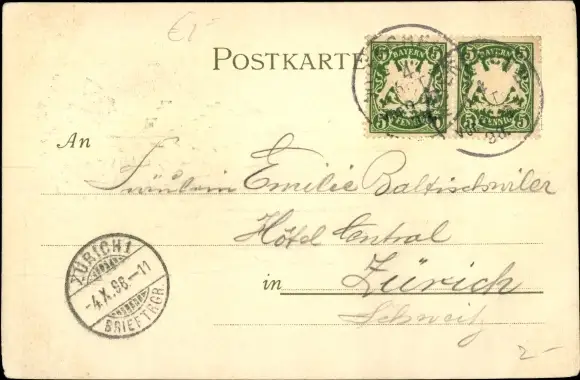 €1-
POSTKARTE
BAYERN
5 5
PFENNIG
BAYERN
5 5
PFENNIG
An Fräulein Emilie Baltischwiler
Hôtel Central
in Zürich
Schweitz
ZÜRICH 1
-4.X.98.-11
BRIEFTRGR.
2-